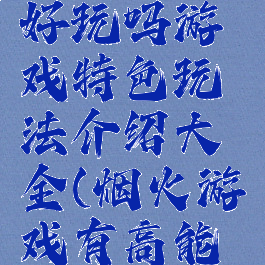 好玩吗游
戏特色玩
法介绍大
全(烟火游
戏有高能